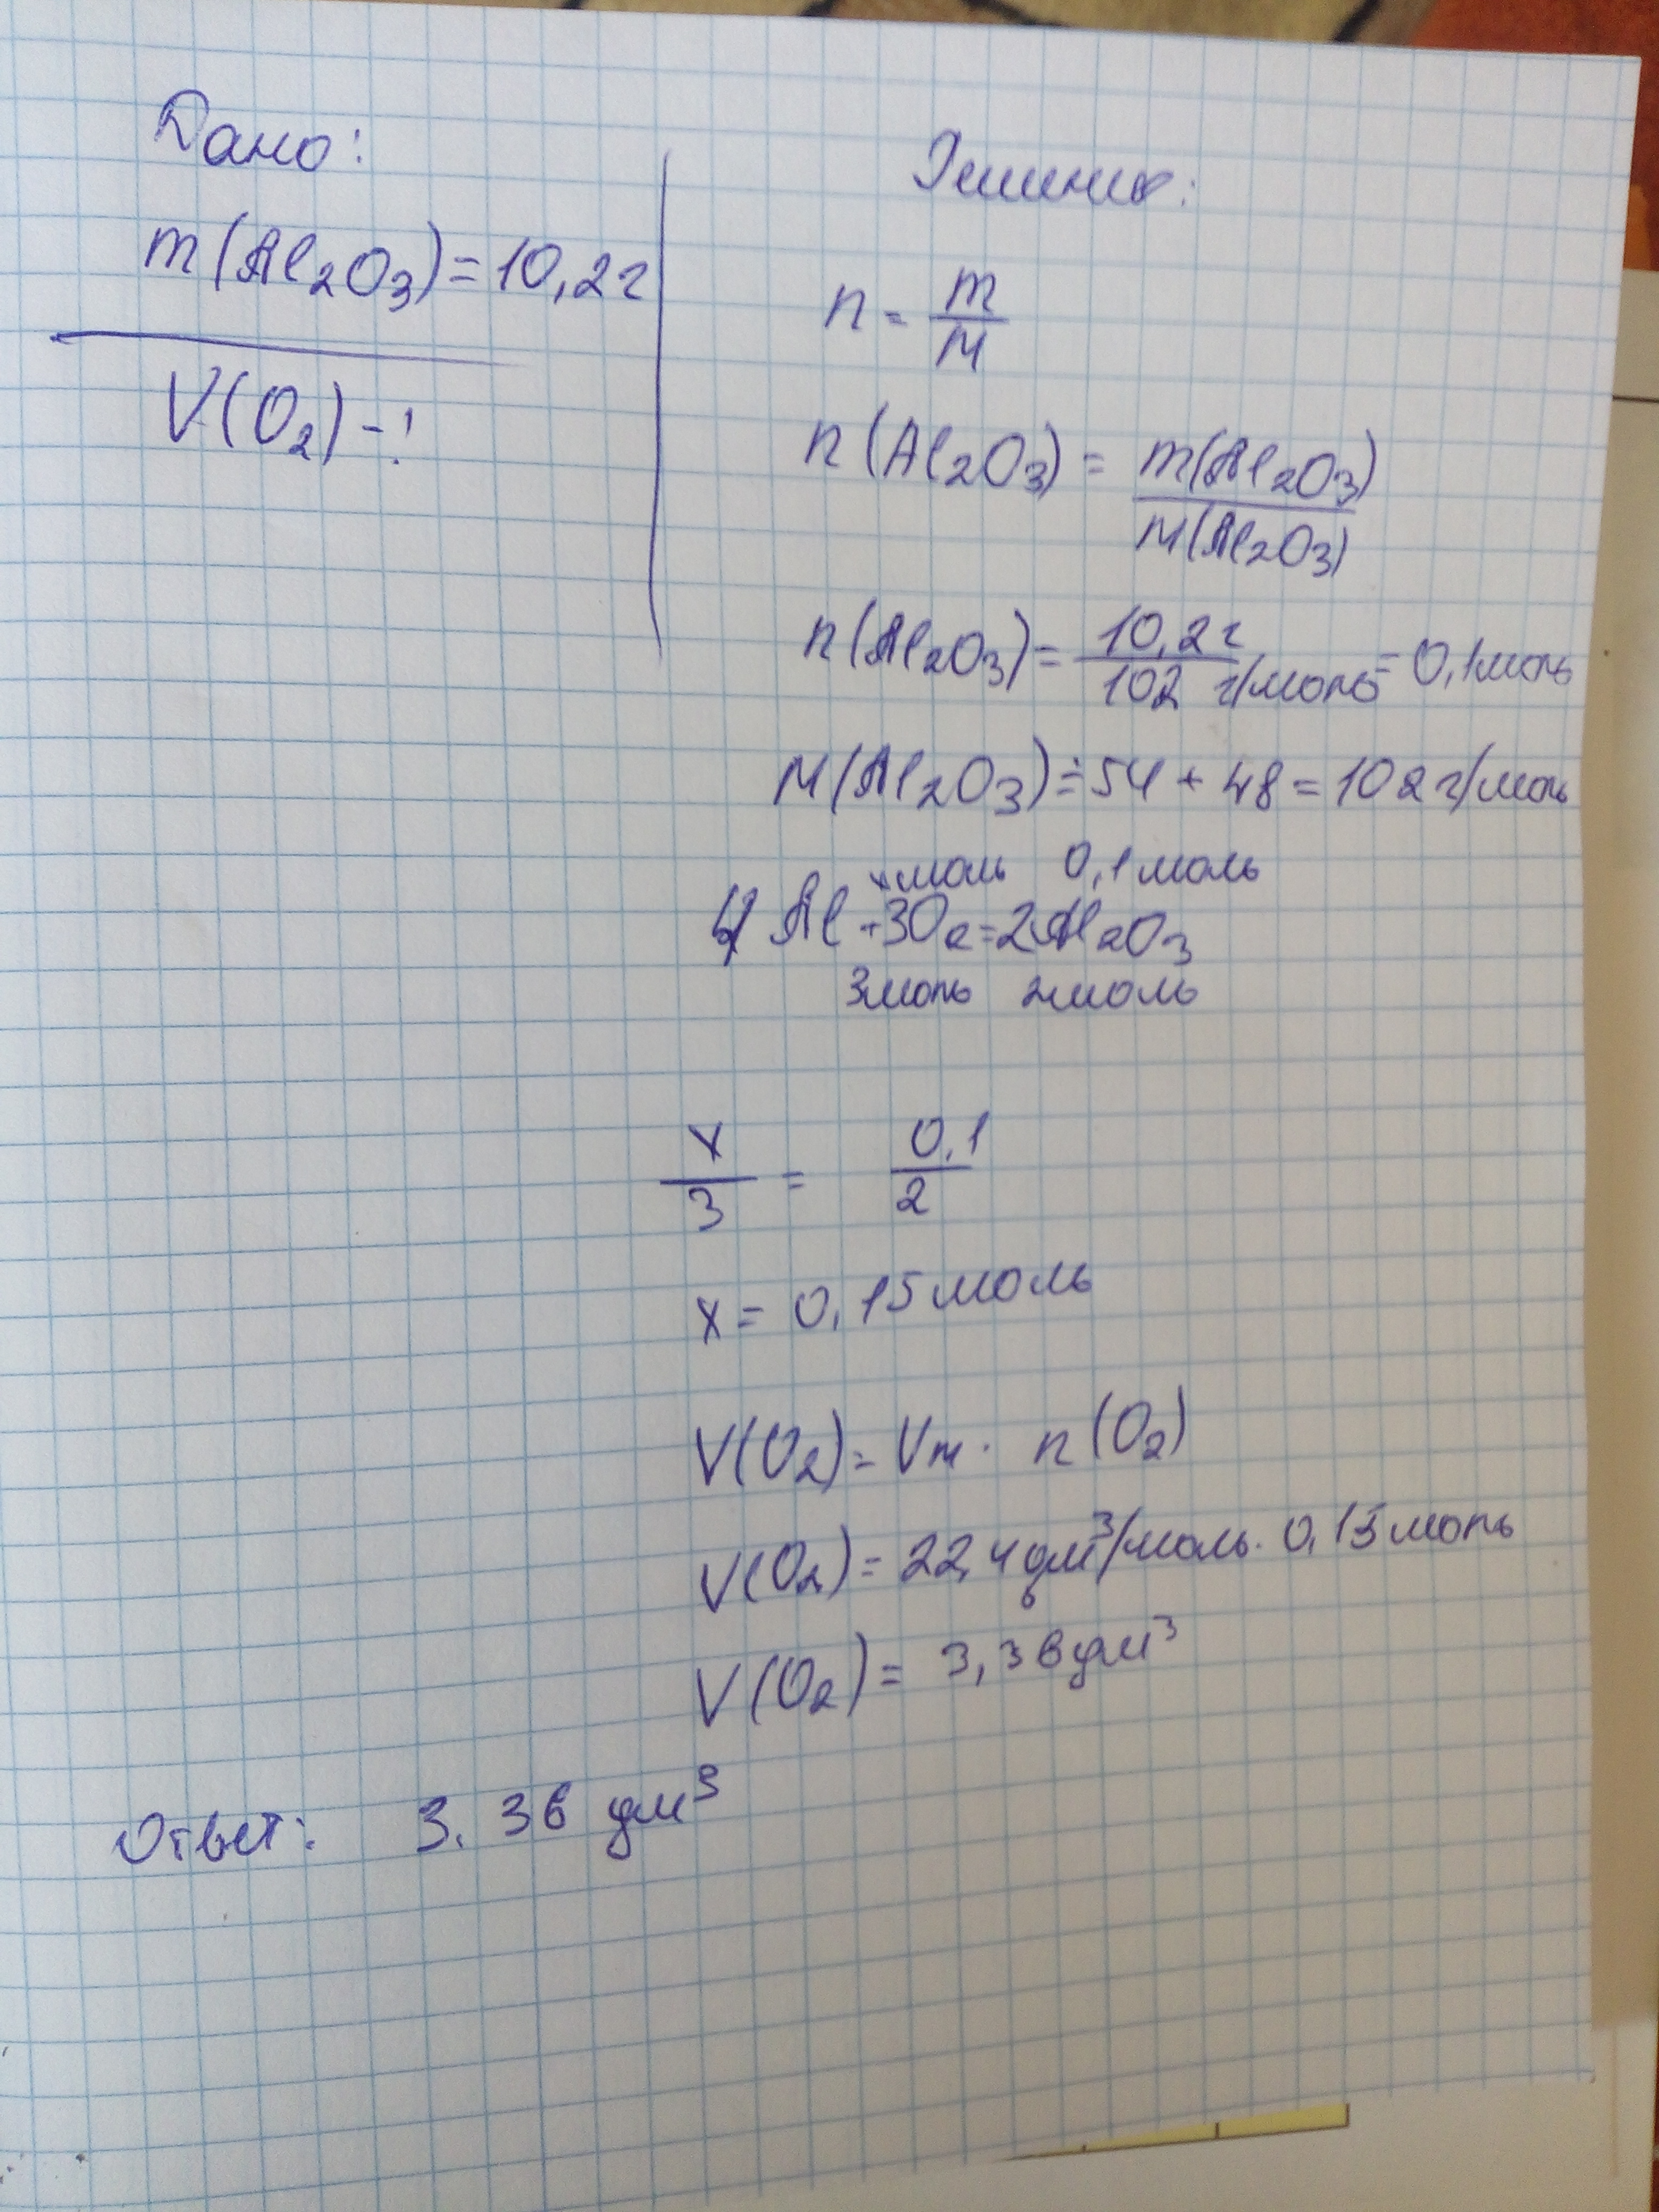 Дано:
m(Al₂O₃)=10,2г
V(O₂)-?
Решение:
n = m/M
n(Al₂O₃) = m(Al₂O₃)/M(Al₂O₃)
n(Al₂O₃) = 10,2г/102 г/моль = 0,1моль
M(Al₂O₃) = 54 + 48 = 102 г/моль
x моль 0,1 моль
4Al + 3O₂ = 2Al₂O₃
3моль 2моль
x/3 = 0,1/2
x = 0,15 моль
V(O₂) = Vm · n(O₂)
V(O₂) = 22,4 дм³/моль · 0,15 моль
V(O₂) = 3,36 дм³
Ответ: 3.36 дм³